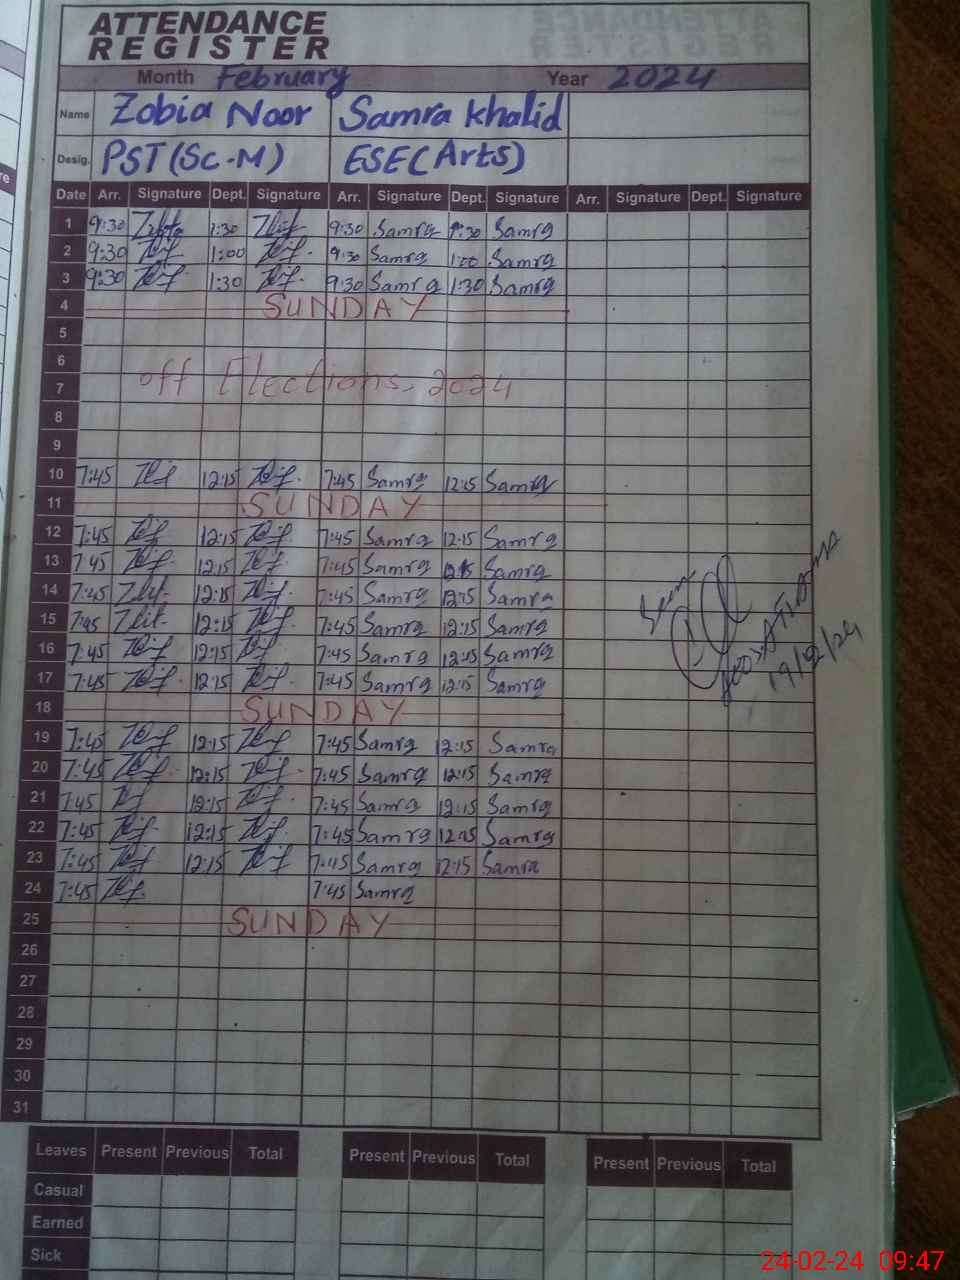 ATTENDANCE
REGISTER
Month February Year 2024
Name Zobia Noor Samra Khalid
Desig. PST (Sc-M) ESE (Arts)
Date Arr. Signature Dept. Signature Arr. Signature Dept. Signature Arr. Signature Dept. Signature
1 9:30 1:30 9:30 Samra 1:30 Samra
2 9:30 1:00 9:30 Samra 1:00 Samra
3 9:30 1:30 9:30 Samra 1:30 Samra
4 SUNDAY
5
6
7 off Elections, 2024
8
9
10 7:45 12:15 7:45 Samra 12:15 Samra
11 SUNDAY
12 7:45 12:15 7:45 Samra 12:15 Samra
13 7:45 12:15 7:45 Samra 12:15 Samra
14 7:45 12:15 7:45 Samra 12:15 Samra
15 7:45 12:15 7:45 Samra 12:15 Samra
16 7:45 12:15 7:45 Samra 12:15 Samra
17 7:45 12:15 7:45 Samra 12:15 Samra
Seen
19/2/24
18 SUNDAY
19 7:45 12:15 7:45 Samra 12:15 Samra
20 7:45 12:15 7:45 Samra 12:15 Samra
21 7:45 12:15 7:45 Samra 12:15 Samra
22 7:45 12:15 7:45 Samra 12:15 Samra
23 7:45 12:15 7:45 Samra 12:15 Samra
24 7:45 7:45 Samra
25 SUNDAY
26
27
28
29
30
31
Leaves Present Previous Total Present Previous Total Present Previous Total
Casual
Earned
Sick
24-02-24 09:47